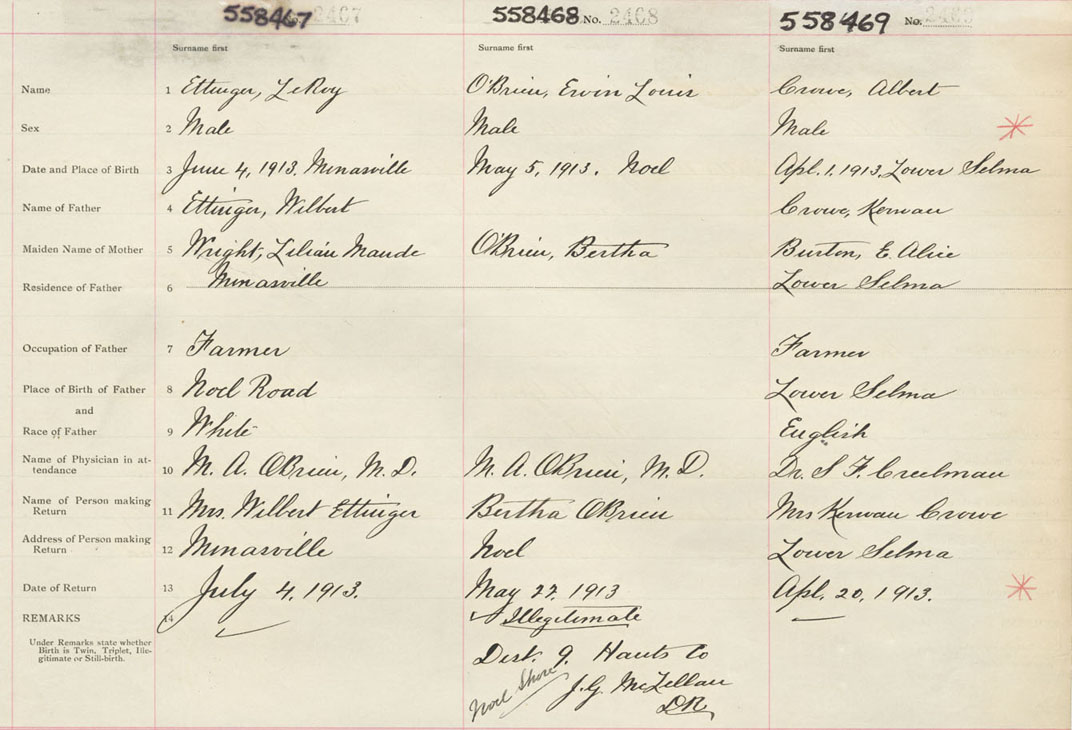 558467 No. 2467 558468 No. 2468 558469 No. 2469
Surname first Surname first Surname first
Name 1 Ettinger, LeRoy O'Brien, Ervin Louis Crowe, Albert
Sex 2 Male Male Male
Date and Place of Birth 3 June 4, 1913, Minasville May 5, 1913. Noel Apl. 1. 1913, Lower Selma
Name of Father 4 Ettinger, Wilbert Crowe, Kerwan
Maiden Name of Mother 5 Wright, Lilian Maude O'Brien, Bertha Burton, E. Alice
Residence of Father 6 Minasville Lower Selma
Occupation of Father 7 Farmer Farmer
Place of Birth of Father 8 Noel Road Lower Selma
and
Race of Father 9 White English
Name of Physician in at-
tendance 10 M. A. O'Brien, M. D. M. A. O'Brien, M. D. Dr. S F. Creelman
Name of Person making
Return 11 Mrs. Wilbert Ettinger Bertha O'Brien Mrs Kerwan Crowe
Address of Person making
Return 12 Minasville Noel Lower Selma
Date of Return 13 July 4, 1913. May 27 1913 Apl. 20, 1913.
REMARKS 14 Illegitimate
Under Remarks state whether
Birth is Twin, Triplet, Ille-
gitimate or Still-birth.
Dist. 9. Hants Co
Noel Shore J. G. McLellan
DR